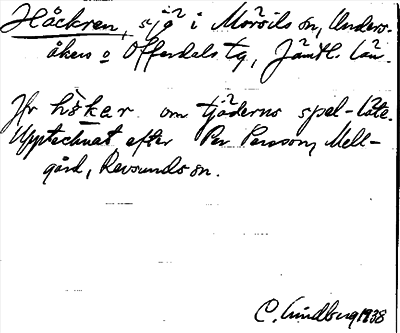 Häckren, sjö i Mörsils sn, Unders-
åkers o Offerdals tg, Jämtl. län.
Jfr höker om tjäderns spel-läte.
Upptecknat efter Per Persson, Mell-
gård, Revsunds sn.
C. Lindberg 1938